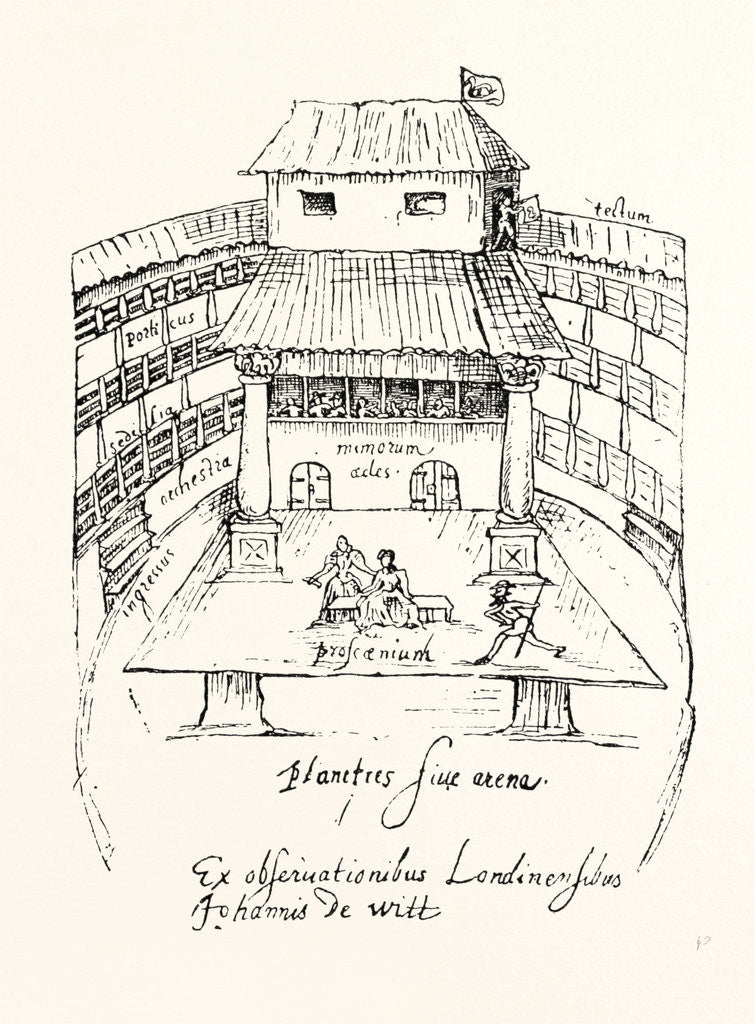 tectum
porticus
sedilia
orchestra
mimorum
ædes.
ingressus
proſcænium
planities ſiue arena.
Ex obſeruationibus Londinenſibus
Johannis De Witt